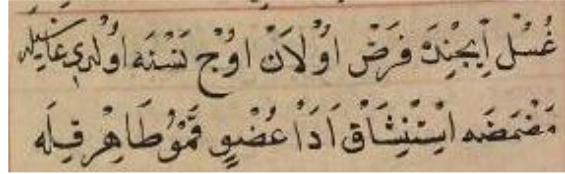 غُسُلْ اِيچِنْدَه فَرَضْ اوُلَانْ اوُچْ نَسْنَه اوُلدِى عَاقِلَه
مَضْمَضَه اِسْتِنْشَاقْ اَدَا عُضْوِ قَمُو طَاهِرْ قِلَه